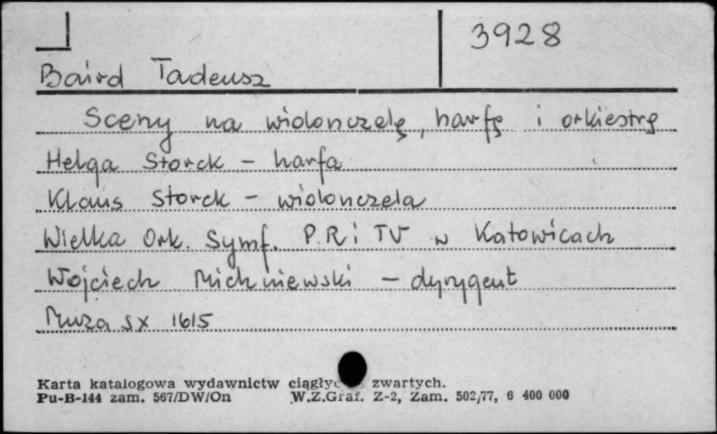 3928
Baird Tadeusz
Sceny na wiolonczelę, harfę i orkiestrę
Helga Storck – harfa
Klaus Storck – wiolonczela
Wielka Ork. Symf. P.R i TV w Katowicach
Wojciech Michniewski – dyrygent
Muza SX 1615
Karta katalogowa wydawnictw zwartych.
Pu-B-144 zam. 567/DW/On W.Z.Graf. Z-2, Zam. 502/77, 6 400 000